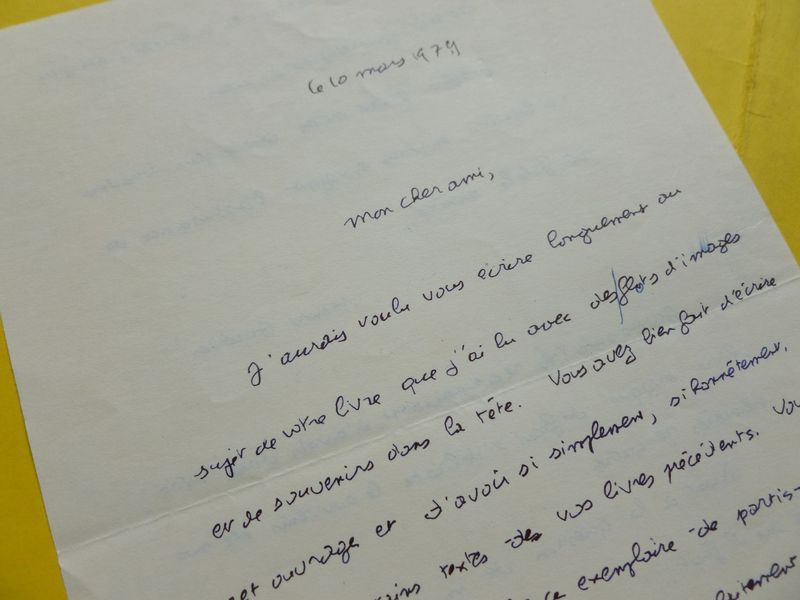 le 10 mars 1979
Mon cher ami,
J'aurais voulu vous écrire longuement au
sujet de votre livre que j'ai lu avec des flots d'images
et de souvenirs dans la tête. Vous avez bien fait d'écrire
et ouvrage et d'avoir si simplement, si honnêtement,
textes des vos livres précédents. Vou
exemplaire de partis-